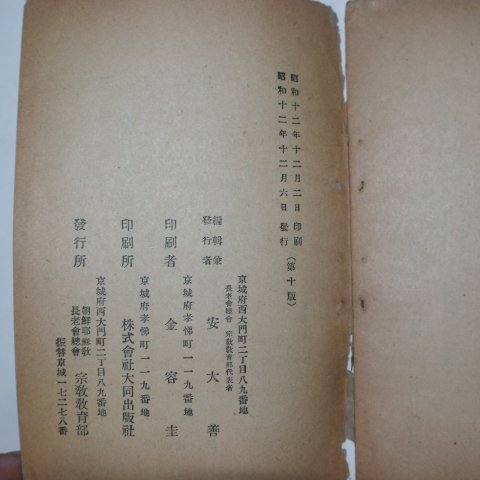 昭和十二年十二月二日 印刷
昭和十二年十二月六日 發行 (第十版)
京城府西大門町二丁目八九番地
長老會總會 宗敎敎育部代表者
編輯兼
發行者 安大善
京城府孝悌町一一九番地
印刷者 金容圭
京城府孝悌町一一九番地
印刷所 株式會社大同出版社
京城府西大門町二丁目八九番地
發行所 朝鮮耶穌敎
長老會總會 宗敎敎育部
振替京城一七二七八番